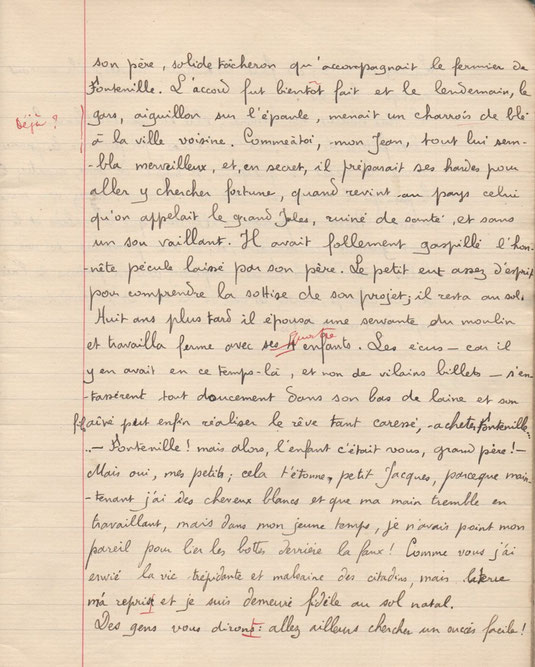 son père, solide tâcheron qu'accompagnait le fermier de
Fontenille. L'accord fut bientôt fait et le lendemain, le
Déjà ? gars, aiguillon sur l'épaule, menait un charrois de blé
à la ville voisine. Comme toi, mon Jean, tout lui sem-
-bla merveilleux, et, en secret, il préparait ses hardes pour
aller y chercher fortune, quand revint au pays celui
qu'on appelait le grand Jules, ruiné de santé, et sans
un sou vaillant. Il avait follement gaspillé l'hon-
nête pécule laissé par son père. Le petit eut assez d'esprit
pour comprendre la sottise de son projet; il resta au sol.
Huit ans plus tard il épousa une servante du moulin
et travailla ferme avec ses 4 quatre enfants. Les écus - car il
y en avait en ce temps-là, et non de vilains billets - s'en-
tassèrent tout doucement dans son bas de laine et son
aîné put enfin réaliser le rêve tant caressé, - acheter Fontenille -
- Fontenille ! mais alors, l'enfant c'était vous, grand père ! -
Mais oui, mes petits; cela t'étonne, petit Jacques, parceque main-
-tenant j'ai des cheveux blancs et que ma main tremble en
travaillant, mais dans mon jeune temps, je n'avais point mon
pareil pour lier les bottes derrière la faux ! Comme vous j'ai
envié la vie trépidante et malsaine des citadins, mais la terre
m'a repris et je suis demeuré fidèle au sol natal.
Des gens vous diront : allez ailleurs chercher un succès facile !